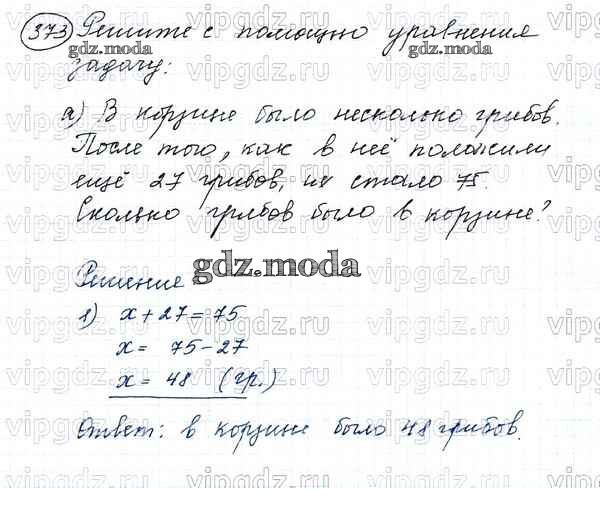 373 Решите с помощью уравнения
gdz.moda gdz.moda
задачу:
а) В корзине было несколько грибов.
После того, как в неё положили
ещё 27 грибов, их стало 75.
Сколько грибов было в корзине?
Решение
gdz.moda
1) x + 27 = 75
x = 75 - 27
x = 48 (гр.)
Ответ: в корзине было 48 грибов.
vipgdz.ru